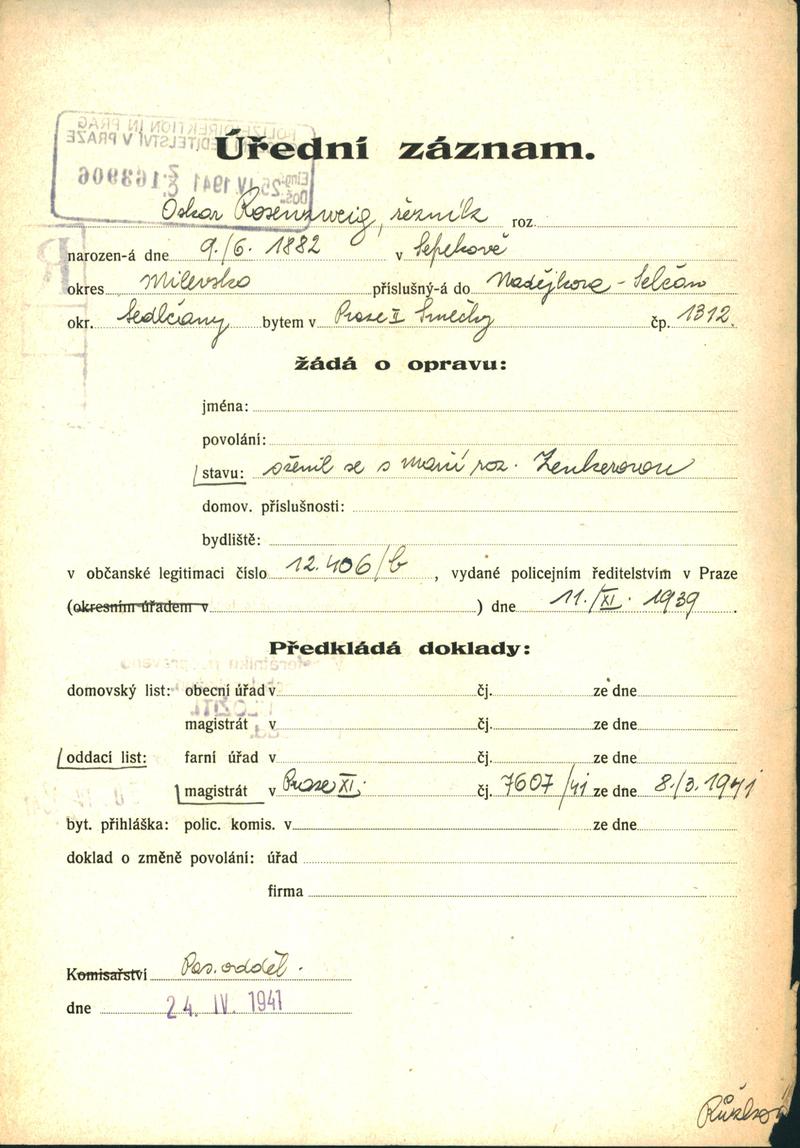 POLIZEIDIREKTION IN PRAG
ŘEDITELSTVÍ V PRAZE
25. IV. 1941 Č. 163906
Úřední záznam.
Oskar Rosenzweig, řezník roz.
narozen-á dne 9./6. 1882 v Sepekově
okres Milevsko příslušný-á do Nadějkova - Selčan
okr. Sedlčany bytem v Praze II Smečky čp. 1312.
žádá o opravu:
jména:
povolání:
stavu: oženil se s Marií roz. Zenkerovou
domov. příslušnosti:
bydliště:
v občanské legitimaci číslo 12.406/b, vydané policejním ředitelstvím v Praze
(okresním úřadem v ) dne 11./XI. 1939.
Předkládá doklady:
domovský list: obecní úřad v čj. ze dne
magistrát v čj. ze dne
oddací list: farní úřad v čj. ze dne
magistrát v Praze XI. čj. 7607/41 ze dne 8./3. 1941
byt. přihláška: polic. komis. v ze dne
doklad o změně povolání: úřad
firma
Komisařství Pas. odděl.
dne 24. IV. 1941